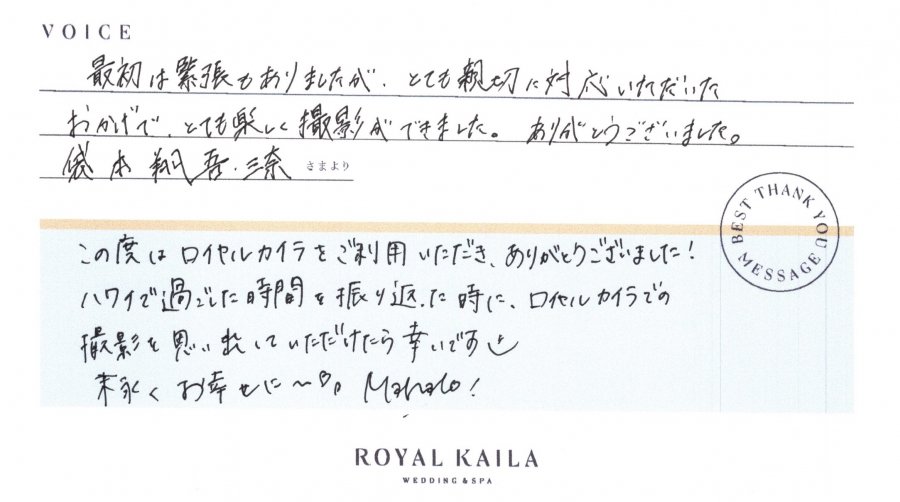 VOICE
最初は緊張もありましたが、とても親切に対応いただいた
おかげで、とても楽しく撮影ができました。ありがとうございました。
袋本 翔吾・三奈 さまより
BEST THANK YOU MESSAGE
この度はロイヤルカイラをご利用いただき、ありがとうございました!
ハワイで過ごした時間を振り返った時に、ロイヤルカイラでの
撮影を思い出していただけたら幸いです
末永くお幸せに〜♡。Mahalo!
ROYAL KAILA
WEDDING & SPA